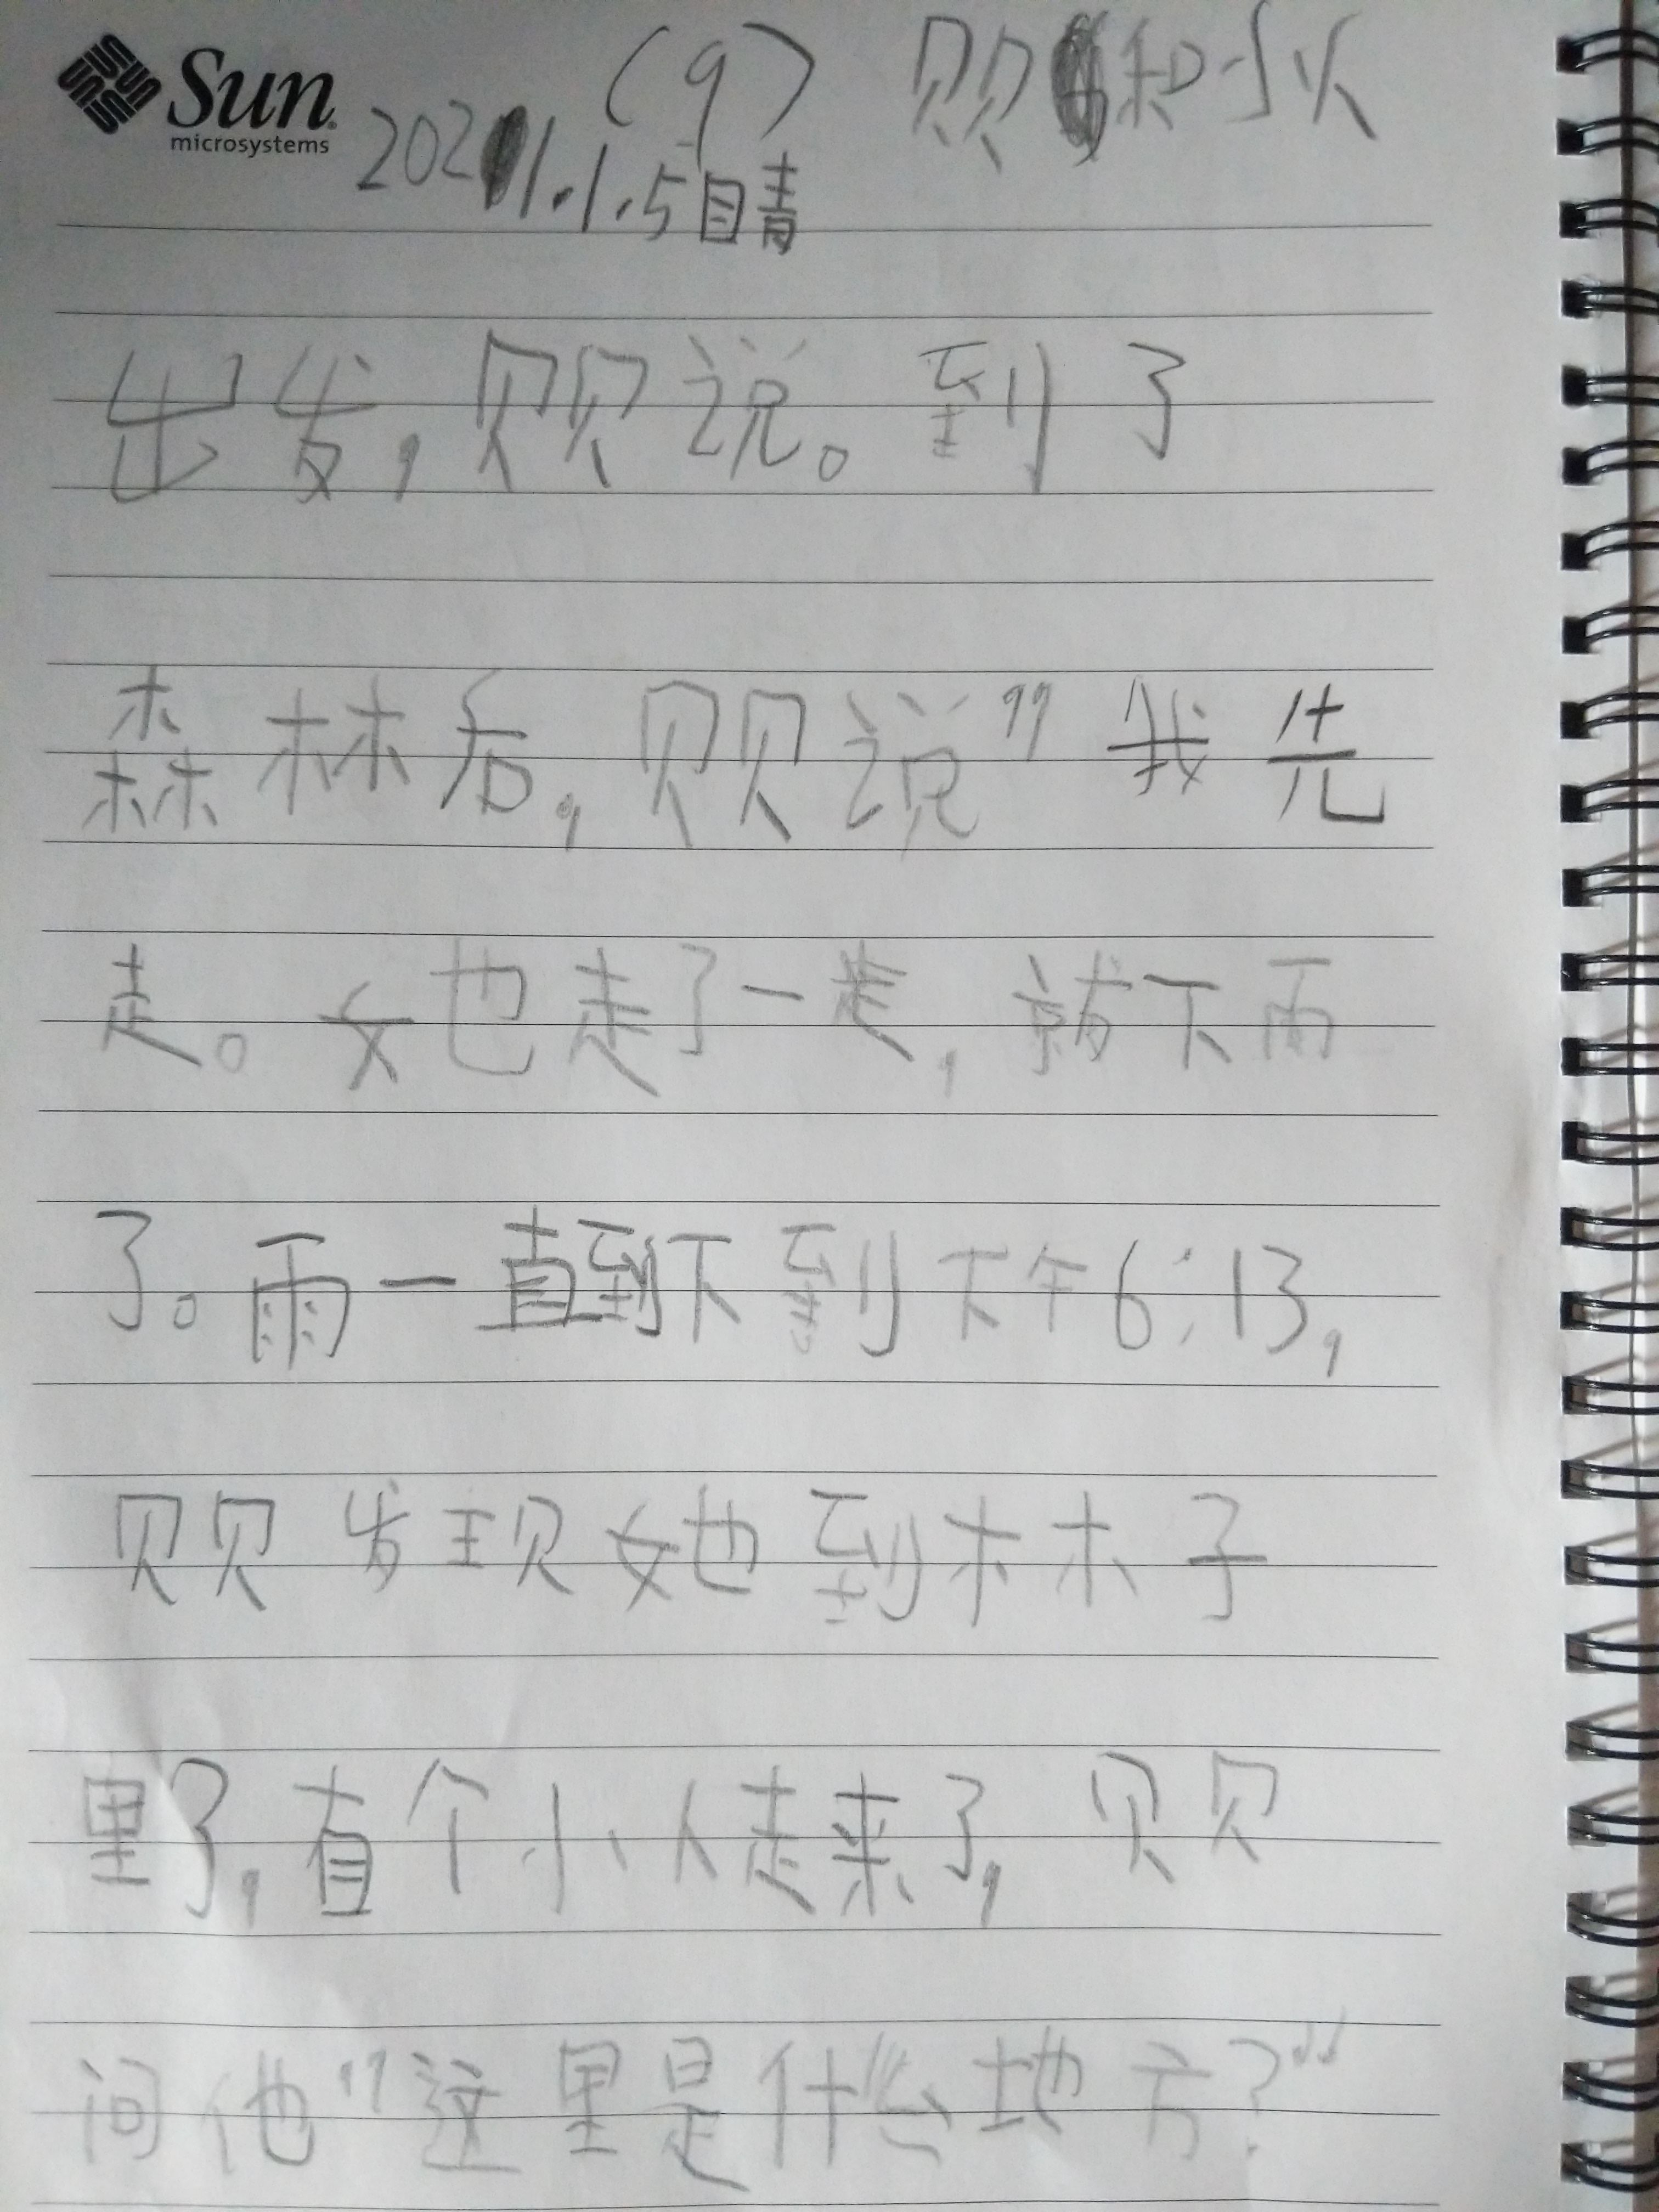 Sun
microsystems
(9) 贝贝和小人
2021.1.5晴
出发,贝贝说。到了
森林后,贝贝说”我先
走。她走了一走,就下雨
了。雨一直到下到下午6:13,
贝贝发现她到木木子
里了,有个小人走来了,贝贝
问他”这里是什么地方?“